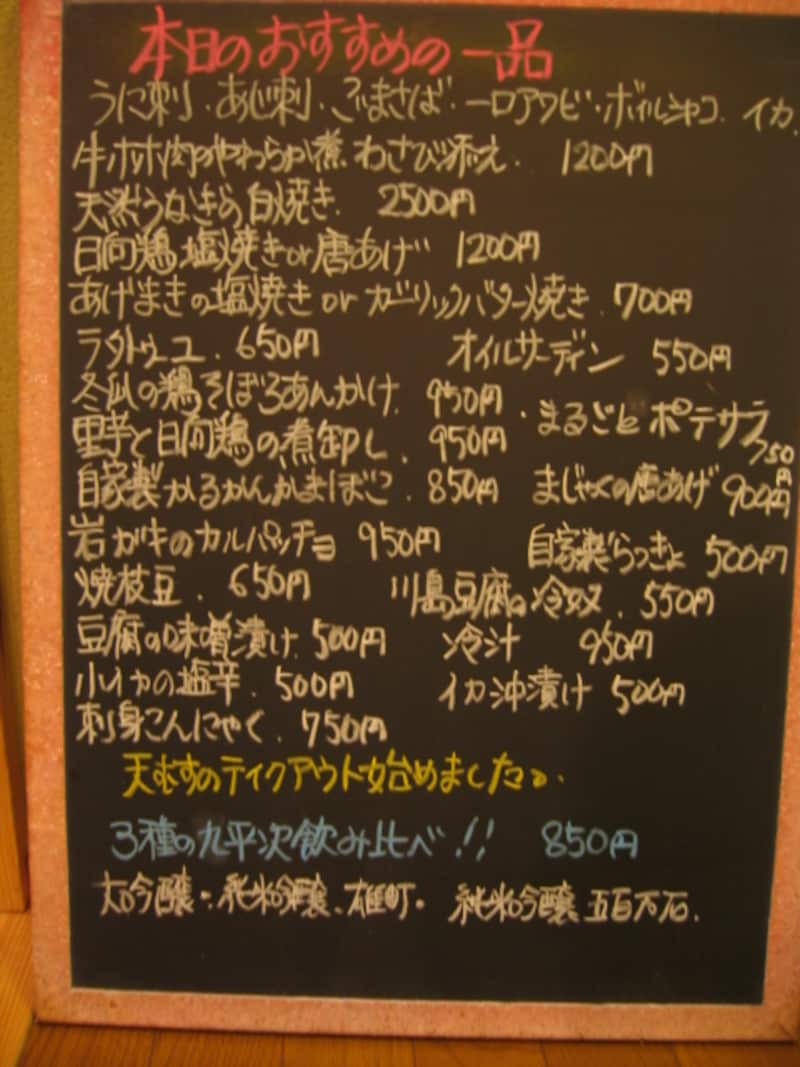 本日のおすすめの一品
うに刺・あじ刺・ごまさば・一口アワビ・ボイルシャコ イカ
牛ホホ肉のやわらか煮 わさび添え. 1200円
天然うなぎの白焼き. 2500円
日向鶏塩焼きor唐あげ 1200円
あげまきの塩焼きorガーリックバター焼き. 700円
ラタトゥーユ. 650円 オイルサーディン 550円
冬瓜の鶏そぼろあんかけ 950円 ・まるごとポテサラ 750円
里芋と日向鶏の煮卸し. 950円
自家製かるかんかまぼこ. 850円 まじゃくの唐あげ 900円
岩ガキのカルパッチョ 950円 自家製らっきょ 500円
焼枝豆. 650円 川島豆腐の冷奴. 550円
豆腐の味噌漬け 500円 冷汁 950円
小イカの塩辛. 500円 イカ沖漬け 500円
刺身こんにゃく. 750円
天むすのテイクアウト始めました。
3種の九平次飲み比べ!! 850円
大吟醸・純米吟醸、雄町・ 純米吟醸 五百万石.